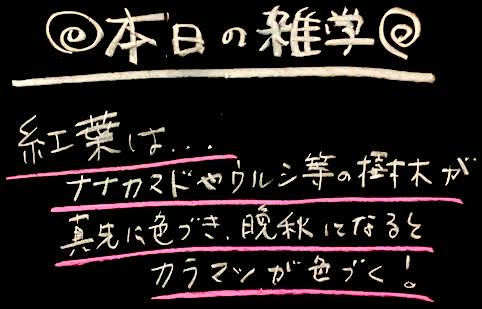 本日の雑学
紅葉は...
ナナカマドやウルシ等の樹木が
真先に色づき、晩秋になると
カラマツが色づく!